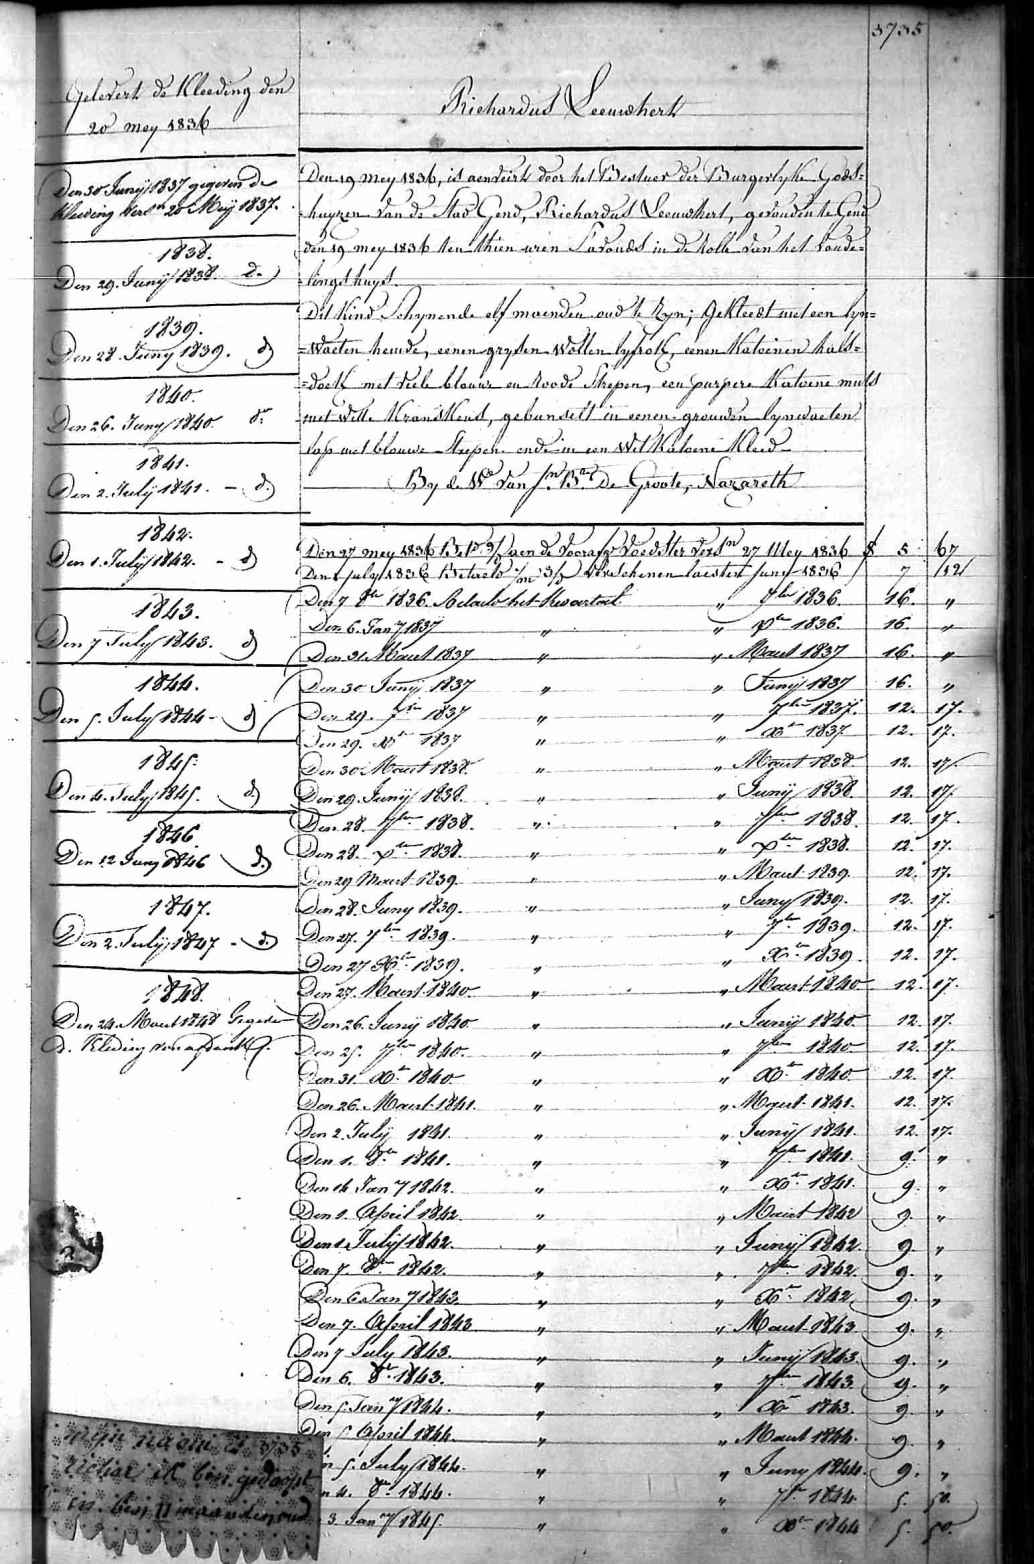 3735
Gelevert de Kleeding den
20 mey 1836
Den 30 Junij 1837 gegeven de
Kleeding 20 Meij 1837.
1838.
Den 29. Junij 1838. d°
1839.
Den 28. Juny 1839. d°
1840.
Den 26. Juny 1840. d°
1841.
Den 2. Julij 1841. - d°
1842.
Den 1. Julij 1842. - d°
1843.
Den 7 July 1843. d°
1844.
Den 5. July 1844 - d°
1845.
Den 4. July 1845. d°
1846
Den 12 Juny 1846 d°
1847.
Den 2. Julij 1847 - d°
1848.
Den 24. Maert 1848
d. Kleding
Richardus Leeuwhert
Den 19 mey 1836, is aenveirt door het Bestuer der Burgerlyke Gods=
=huyzen van de Stad Gend, Richardus Leeuwhert, gevonden te Gend
den 19 mey 1836 ten thien uren S'avonds in de rolle van het vonde=
=lingshuys.
Dit Kind Schynende elf maenden oud te Zyn; Gekleedt met een lyn=
=waeten hemde, eenen grysen wollen lyfrok, eenen Katoenen hals=
=doek met veele blouwe en roode Strepen, een purpere Katoene muts
met witte Kranskens, gebunselt in eenen grouwen lynwaeten
lap met blouwe Strepen ende in een wit Katoene Kleed
By de We van Jn Bte De Groote, Nazareth
Den 27 mey 1836 aen de Voedster 27 Mey 1836 5 67
Den 1 july 1836 Betaelt verschenen laesten juny 1836 7 12
Den 7 8re 1836. Betaelt het Kwartael " 7bre 1836. 16. "
Den 6. Jany 1837 " " Xbre 1836. 16. "
Den 31. Maert 1837 " " Maert 1837 16. "
Den 30 Junij 1837 " " Junij 1837 16. "
Den 29. 7bre 1837 " " 7bre 1837. 12. 17.
Den 29. Xbre 1837 " " Xbre 1837 12. 17.
Den 30 Maert 1838. " " Maert 1838 12. 17.
Den 29. Junij 1838. " " Junij 1838. 12. 17.
Den 28. 7bre 1838. " " 7bre 1838. 12. 17.
Den 28. Xbre 1838. " " Xbre 1838. 12. 17.
Den 29 Maert 1839. " " Maert 1839. 12. 17.
Den 28. Juny 1839. " " Juny 1839. 12. 17.
Den 27. 7bre 1839. " " 7bre 1839. 12. 17.
Den 27 Xbre 1839. " " Xbre 1839. 12. 17.
Den 27. Maert 1840. " " Maert 1840 12. 17.
Den 26. Junij 1840. " " Junij 1840. 12. 17.
Den 25. 7bre 1840. " " 7bre 1840. 12. 17.
Den 31. Xbre 1840. " " Xbre 1840. 12. 17.
Den 26. Maert 1841. " " Maert 1841. 12. 17.
Den 2. Julij 1841. " " Junij 1841. 12. 17.
Den 1. 8re 1841. " " 7bre 1841. 9. "
Den 14 Jany 1842. " " Xbre 1841. 9. "
Den 1. April 1842. " " Maert 1842 9. "
Den 1 Julij 1842. " " Junij 1842. 9. "
Den 7. 8re 1842. " " 7bre 1842. 9. "
Den 6 Jany 1843. " " Xbre 1842 9. "
Den 7. April 1843 " " Maert 1843 9. "
Den 7 July 1843. " " Junij 1843. 9. "
Den 6. 8re 1843. " " 7bre 1843. 9. "
Den 5 Jany 1844. " " Xbre 1843. 9. "
Den 5 April 1844 " " Maert 1844. 9. "
n 5. July 1844. " " Juny 1844. 9. "
n 4. 8re 1844. " " 7bre 1844 5. 50.
3. Jany 1845. " " Xbre 1844 5. 50.
mijn naam is 3735
ik ben gedoopt
en ben 11 maanden oud